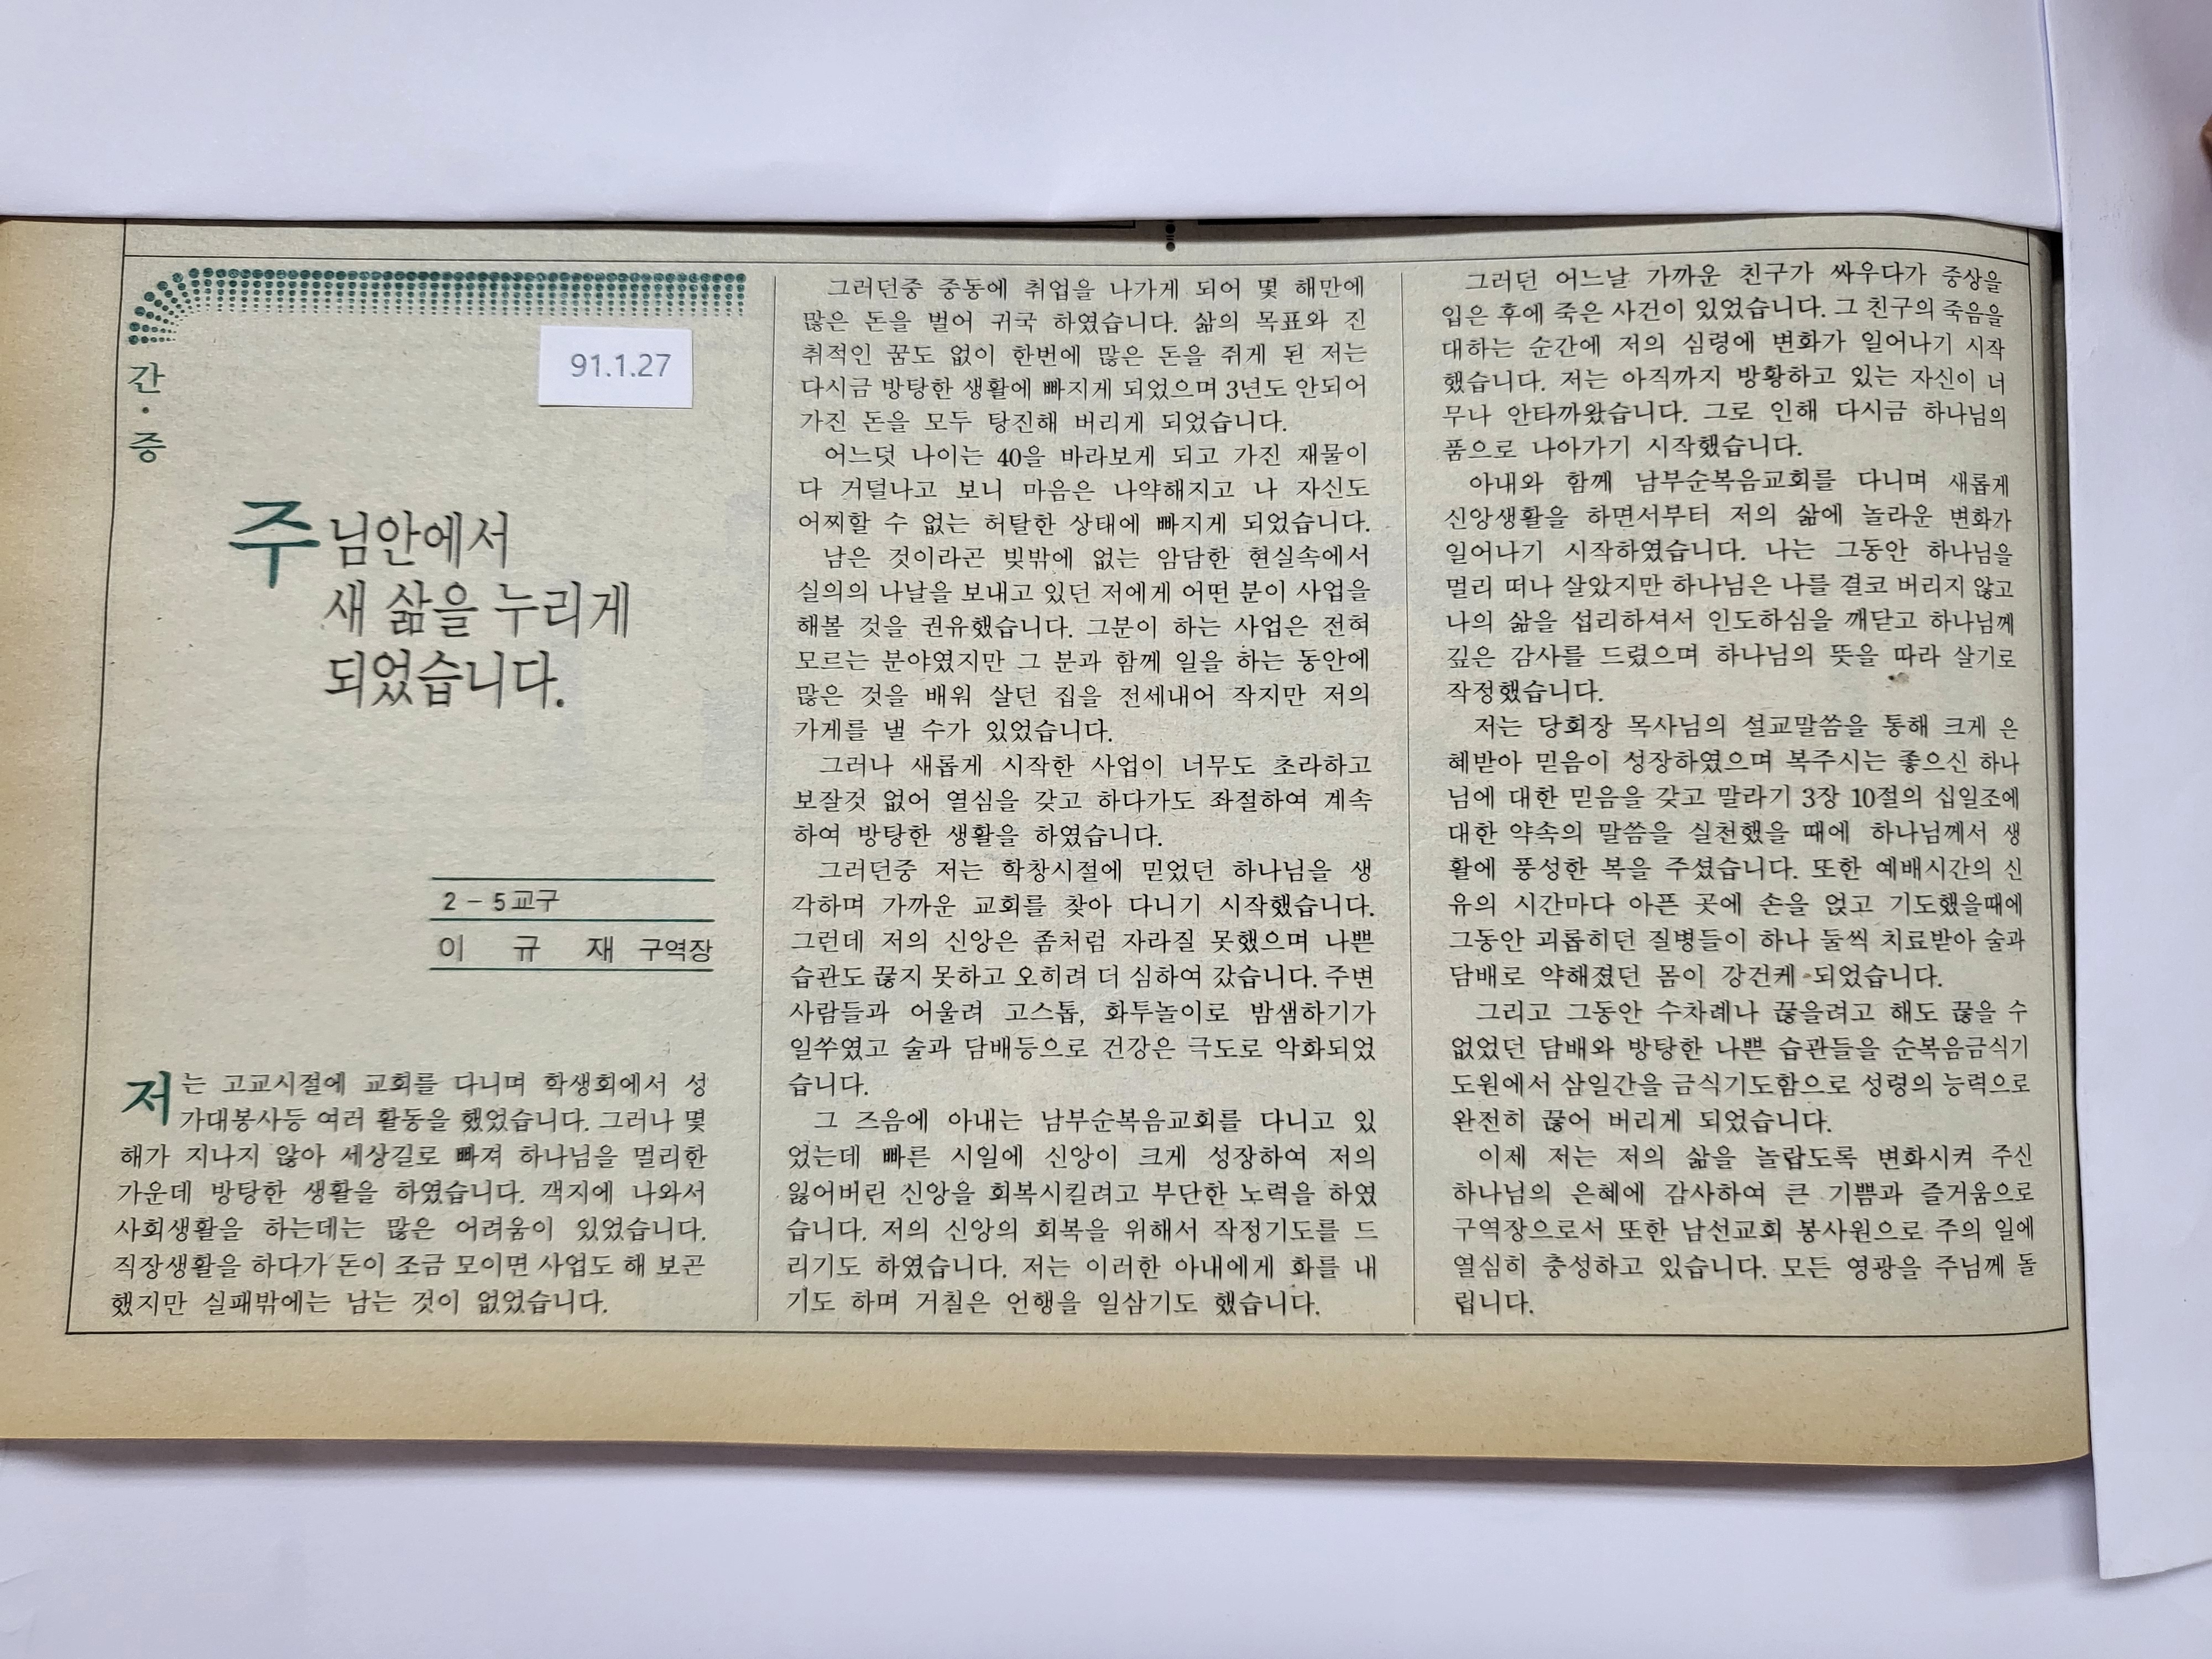 간·증
91.1.27
주님안에서
새 삶을 누리게
되었습니다.
2-5교구
이 규 재 구역장
저는 고교시절에 교회를 다니며 학생회에서 성
가대봉사등 여러 활동을 했었습니다. 그러나 몇
해가 지나지 않아 세상길로 빠져 하나님을 멀리한
가운데 방탕한 생활을 하였습니다. 객지에 나와서
사회생활을 하는데는 많은 어려움이 있었습니다.
직장생활을 하다가 돈이 조금 모이면 사업도 해 보곤
했지만 실패밖에는 남는 것이 없었습니다.
그러던중 중동에 취업을 나가게 되어 몇 해만에
많은 돈을 벌어 귀국 하였습니다. 삶의 목표와 진
취적인 꿈도 없이 한번에 많은 돈을 쥐게 된 저는
다시금 방탕한 생활에 빠지게 되었으며 3년도 안되어
가진 돈을 모두 탕진해 버리게 되었습니다.
어느덧 나이는 40을 바라보게 되고 가진 재물이
다 거덜나고 보니 마음은 나약해지고 나 자신도
어찌할 수 없는 허탈한 상태에 빠지게 되었습니다.
남은 것이라곤 빚밖에 없는 암담한 현실속에서
실의의 나날을 보내고 있던 저에게 어떤 분이 사업을
해볼 것을 권유했습니다. 그분이 하는 사업은 전혀
모르는 분야였지만 그 분과 함께 일을 하는 동안에
많은 것을 배워 살던 집을 전세내어 작지만 저의
가게를 낼 수가 있었습니다.
그러나 새롭게 시작한 사업이 너무도 초라하고
보잘것 없어 열심을 갖고 하다가도 좌절하여 계속
하여 방탕한 생활을 하였습니다.
그러던중 저는 학창시절에 믿었던 하나님을 생
각하며 가까운 교회를 찾아 다니기 시작했습니다.
그런데 저의 신앙은 좀처럼 자라질 못했으며 나쁜
습관도 끊지 못하고 오히려 더 심하여 갔습니다. 주변
사람들과 어울려 고스톱, 화투놀이로 밤샘하기가
일쑤였고 술과 담배등으로 건강은 극도로 악화되었
습니다.
그 즈음에 아내는 남부순복음교회를 다니고 있
었는데 빠른 시일에 신앙이 크게 성장하여 저의
잃어버린 신앙을 회복시킬려고 부단한 노력을 하였
습니다. 저의 신앙의 회복을 위해서 작정기도를 드
리기도 하였습니다. 저는 이러한 아내에게 화를 내
기도 하며 거칠은 언행을 일삼기도 했습니다.
그러던 어느날 가까운 친구가 싸우다가 중상을
입은 후에 죽은 사건이 있었습니다. 그 친구의 죽음을
대하는 순간에 저의 심령에 변화가 일어나기 시작
했습니다. 저는 아직까지 방황하고 있는 자신이 너
무나 안타까왔습니다. 그로 인해 다시금 하나님의
품으로 나아가기 시작했습니다.
아내와 함께 남부순복음교회를 다니며 새롭게
신앙생활을 하면서부터 저의 삶에 놀라운 변화가
일어나기 시작하였습니다. 나는 그동안 하나님을
멀리 떠나 살았지만 하나님은 나를 결코 버리지 않고
나의 삶을 섭리하셔서 인도하심을 깨닫고 하나님께
깊은 감사를 드렸으며 하나님의 뜻을 따라 살기로
작정했습니다.
저는 당회장 목사님의 설교말씀을 통해 크게 은
혜받아 믿음이 성장하였으며 복주시는 좋으신 하나
님에 대한 믿음을 갖고 말라기 3장 10절의 십일조에
대한 약속의 말씀을 실천했을 때에 하나님께서 생
활에 풍성한 복을 주셨습니다. 또한 예배시간의 신
유의 시간마다 아픈 곳에 손을 얹고 기도했을때에
그동안 괴롭히던 질병들이 하나 둘씩 치료받아 술과
담배로 약해졌던 몸이 강건케 되었습니다.
그리고 그동안 수차례나 끊을려고 해도 끊을 수
없었던 담배와 방탕한 나쁜 습관들을 순복음금식기
도원에서 삼일간을 금식기도함으로 성령의 능력으로
완전히 끊어 버리게 되었습니다.
이제 저는 저의 삶을 놀랍도록 변화시켜 주신
하나님의 은혜에 감사하여 큰 기쁨과 즐거움으로
구역장으로서 또한 남선교회 봉사원으로 주의 일에
열심히 충성하고 있습니다. 모든 영광을 주님께 돌
립니다.